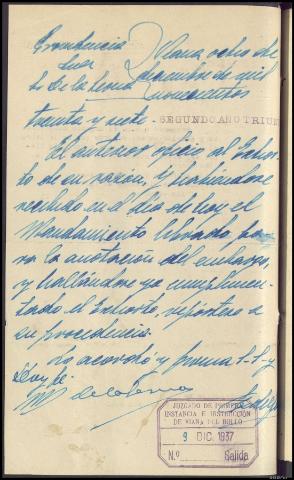 Providencia Viana ocho de
Juez diciembre de mil
Sr. de la novecientos
treinta y siete.- SEGUNDO AÑO TRIUN
El anterior oficio al Exhor-
to de su razón, y habiéndose
recibido en el día de hoy el
Mandamiento librado pa-
ra la anotación del embargo,
y hallándose ya cumplimen-
tado el Exhorto, repórtese a
su procedencia.
Lo acordó y firma S.S. y
doy fé.
JUZGADO DE PRIMERA
INSTANCIA E INSTRUCCIÓN
DE VIANA DEL BOLLO
9 DIC. 1937
N.º Salida